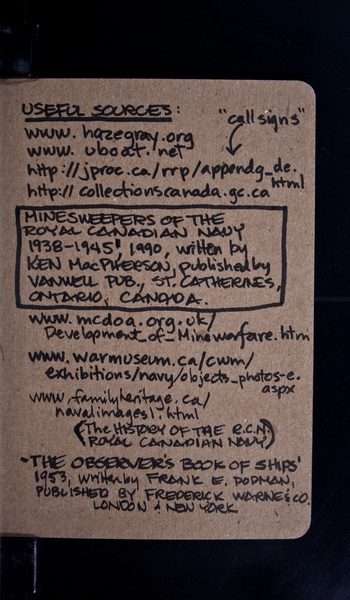 USEFUL SOURCES:
"call signs"
www.hazegray.org
www.uboat.net
http://jproc.ca/rrp/appendg_de.
html
http://collectionscanada.gc.ca
MINESWEEPERS OF THE
ROYAL CANADIAN NAVY
1938-1945', 1990, written by
KEN MacPHERSON, published by
VANWELL PUB., ST. CATHERINES,
ONTARIO, CANADA.
www.mcdoa.org.uk/
Development_of_Minewarfare.htm
www.warmuseum.ca/cwm/
exhibitions/navy/objects_photos-e.
aspx
www.familyheritage.ca/
navalimages1.html
(The HISTORY OF THE R.C.N.
ROYAL CANADIAN NAVY)
-'THE OBSERVER'S BOOK OF SHIPS'
1953, written by FRANK E. DODMAN,
PUBLISHED BY FREDERICK WARNE & CO.
LONDON & NEW YORK